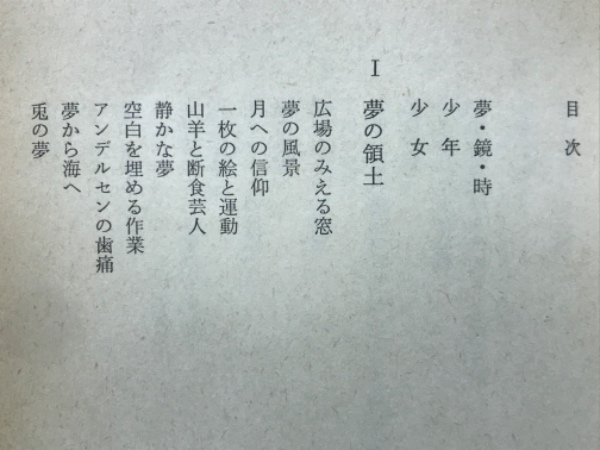 目次
夢・鏡・時
少年
少女
I 夢の領土
広場のみえる窓
夢の風景
月への信仰
一枚の絵と運動
山羊と断食芸人
静かな夢
空白を埋める作業
アンデルセンの歯痛
夢から海へ
兎の夢